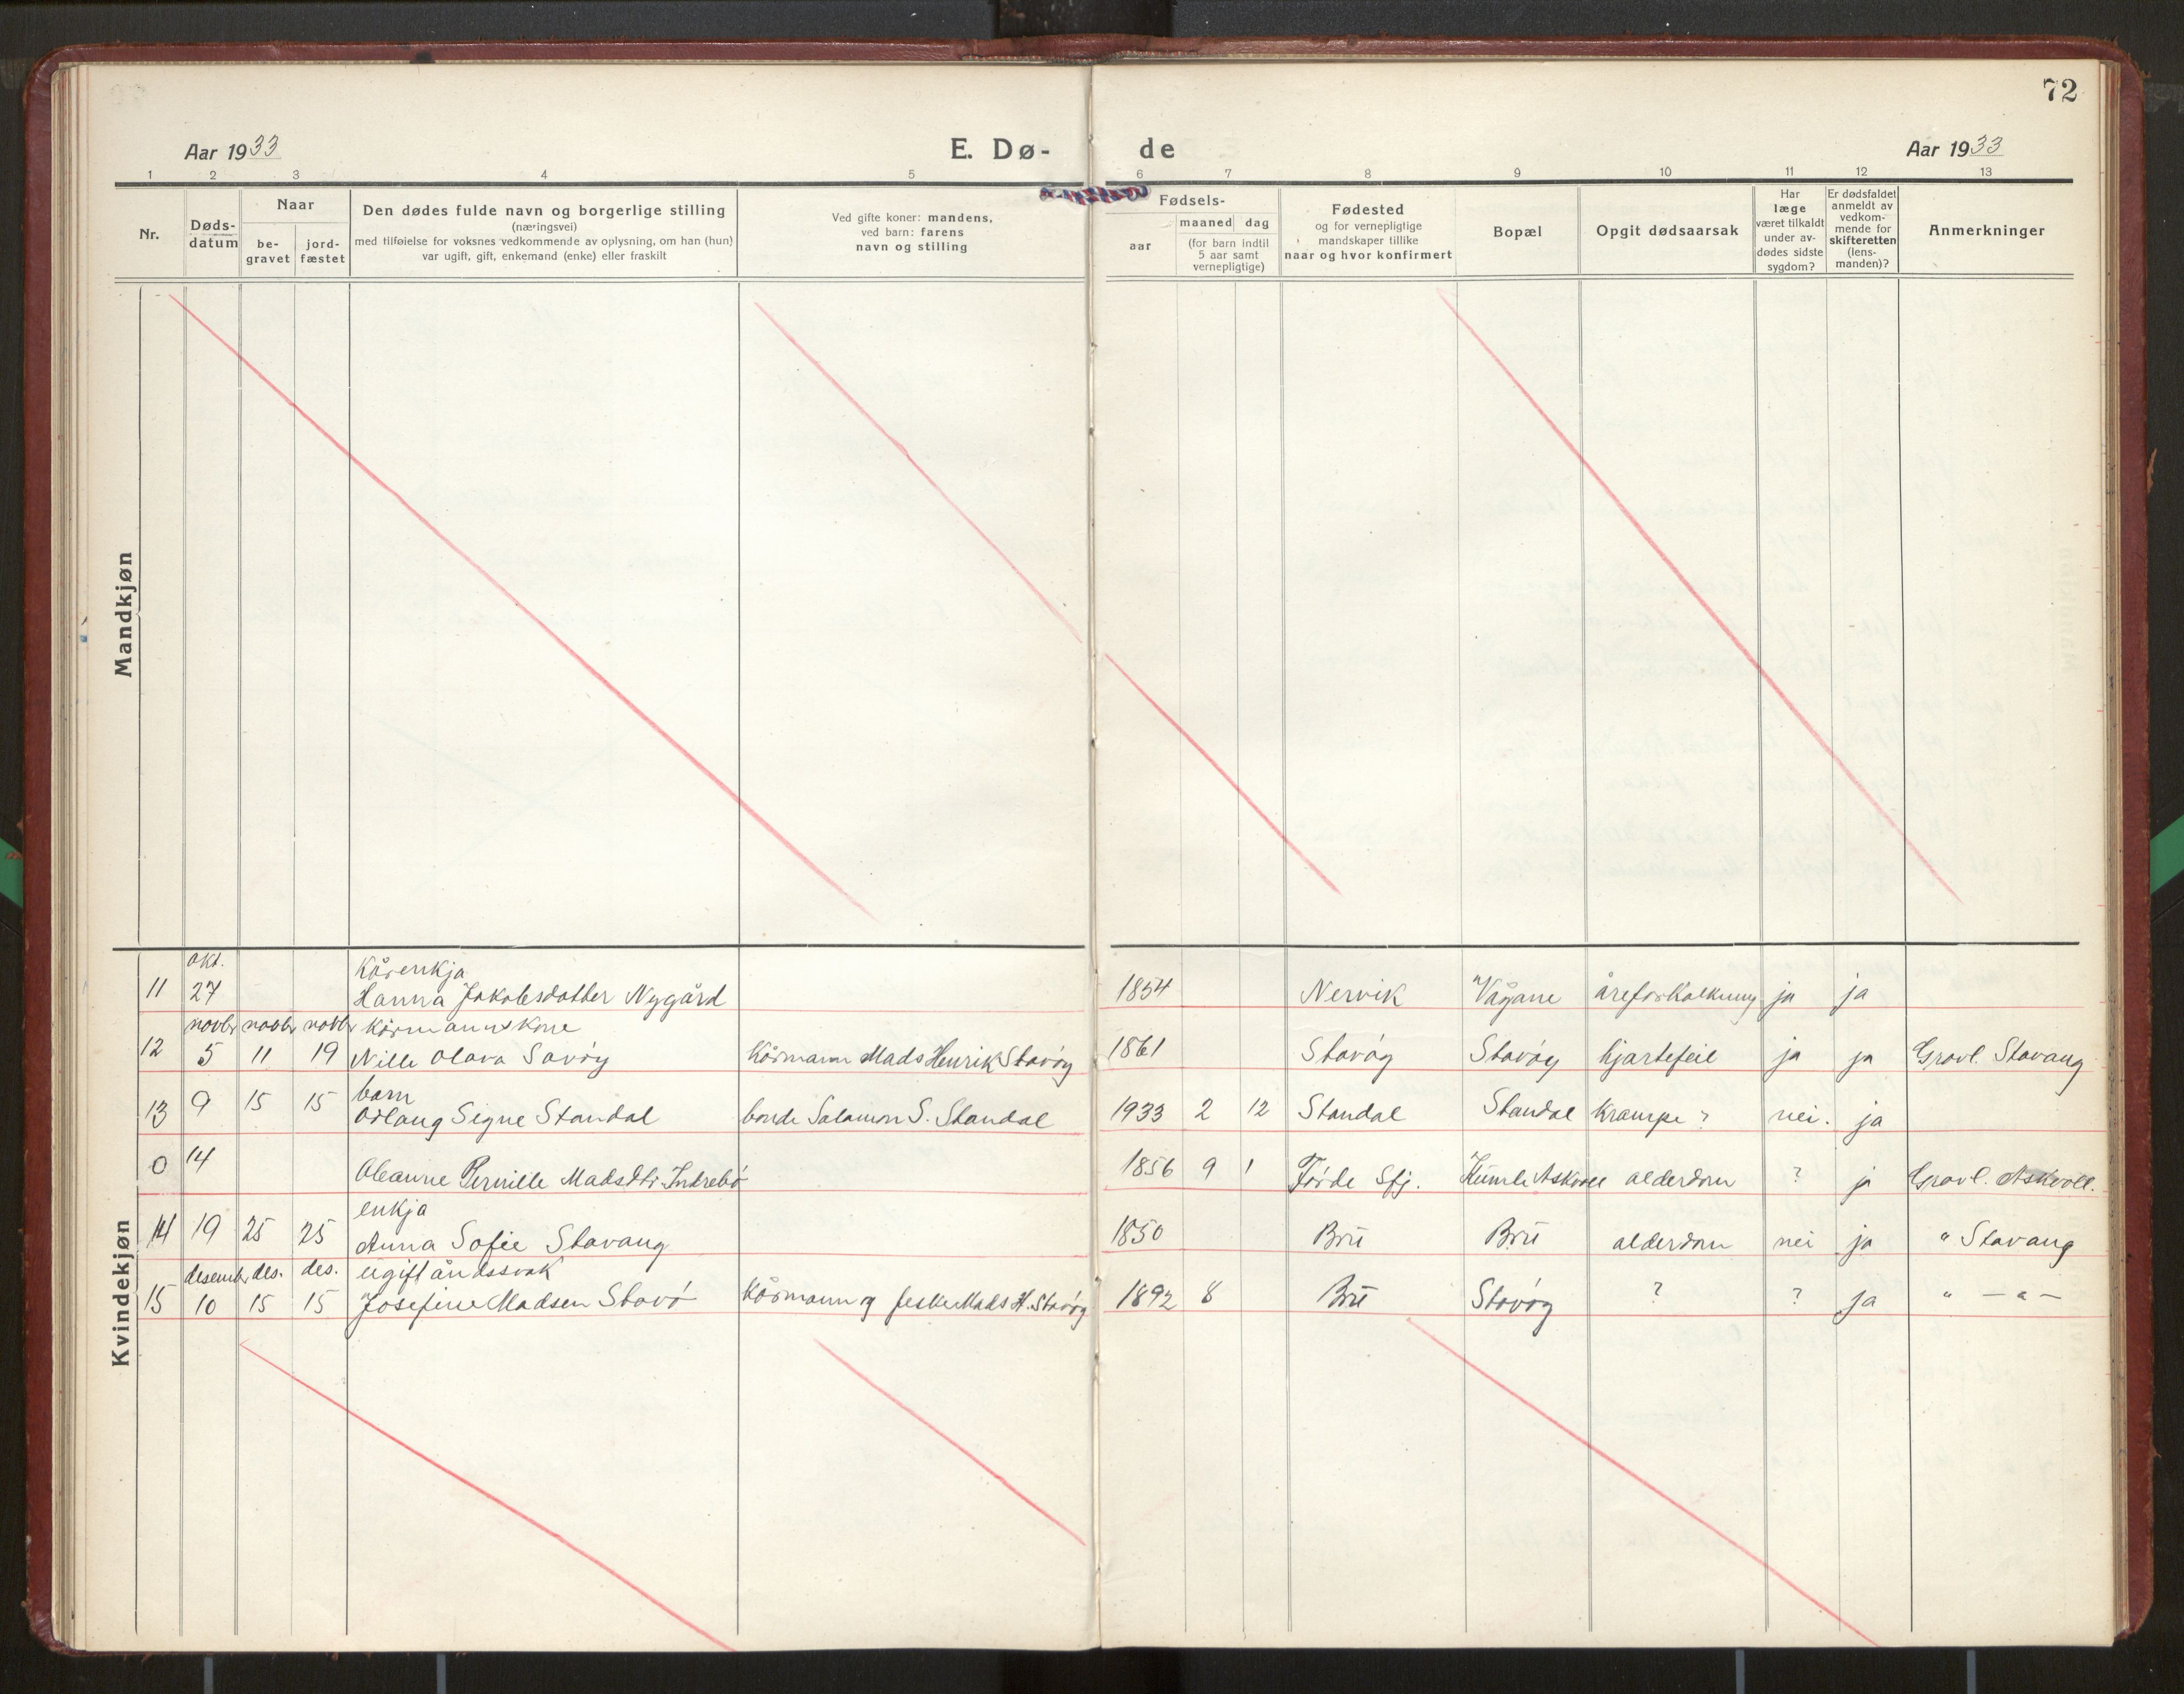 72
Aar 1933 E. Dø- de Aar 1933
1 2 3 4 5 6 7 8 9 10 11 12 13
Nr.
Døds-
datum
Naar
be-
gravet
jord-
fæstet
Den dødes fulde navn og borgerlige stilling
(næringsvei)
med tilføielse for voksnes vedkommende av oplysning, om han (hun)
var ugift, gift, enkemand (enke) eller fraskilt
Ved gifte koner: mandens,
ved barn: farens
navn og stilling
Fødsels-
aar
maaned dag
(for barn indtil
5 aar samt
vernepligtige)
Fødested
og for vernepligtige
mandskaper tillike
naar og hvor konfirmert
Bopæl
Opgit dødsaarsak
Har
læge
været tilkaldt
under av-
dødes sidste
sygdom?
Er dødsfaldet
anmeldt av
vedkom-
mende for
skifteretten
(lens-
manden)?
Anmerkninger
Mandkjøn
Kvindekjøn
okt. Kårenkja
11 27 Hanna Jakobsdotter Nygård 1854 Nervik Vågane åreforkalkning ja ja
novbr novbr novbr Kårmannskone
12 5 11 19 Nille Olava Savöy Kårmann Mads Henrik Stavöy 1861 Stavöy Stavöy hjartefeil ja ja Gravl. Stavang
barn
13 9 15 15 Odlaug Signe Standal bonde Salamon S. Standal 1933 2 12 Standal Standal Krampe ? nei. ja
0 14 Oleanne Pernille Madsdtr. Indrebö 1856 9 1 Förde Sfj. Humle Askvoll alderdom ? ja Gravl. Askvoll.
enkja
14 19 25 25 Anna Sofie Stavang 1850 Brū Brū alderdom nei ja " Stavang
desembr. des. des. ugift åndssvak
15 10 15 15 Josefine Madsen Stavö Kårmann og fesker Mads H. Stavöy 1892 8 Brū Stavöy ? ? ja " — " —